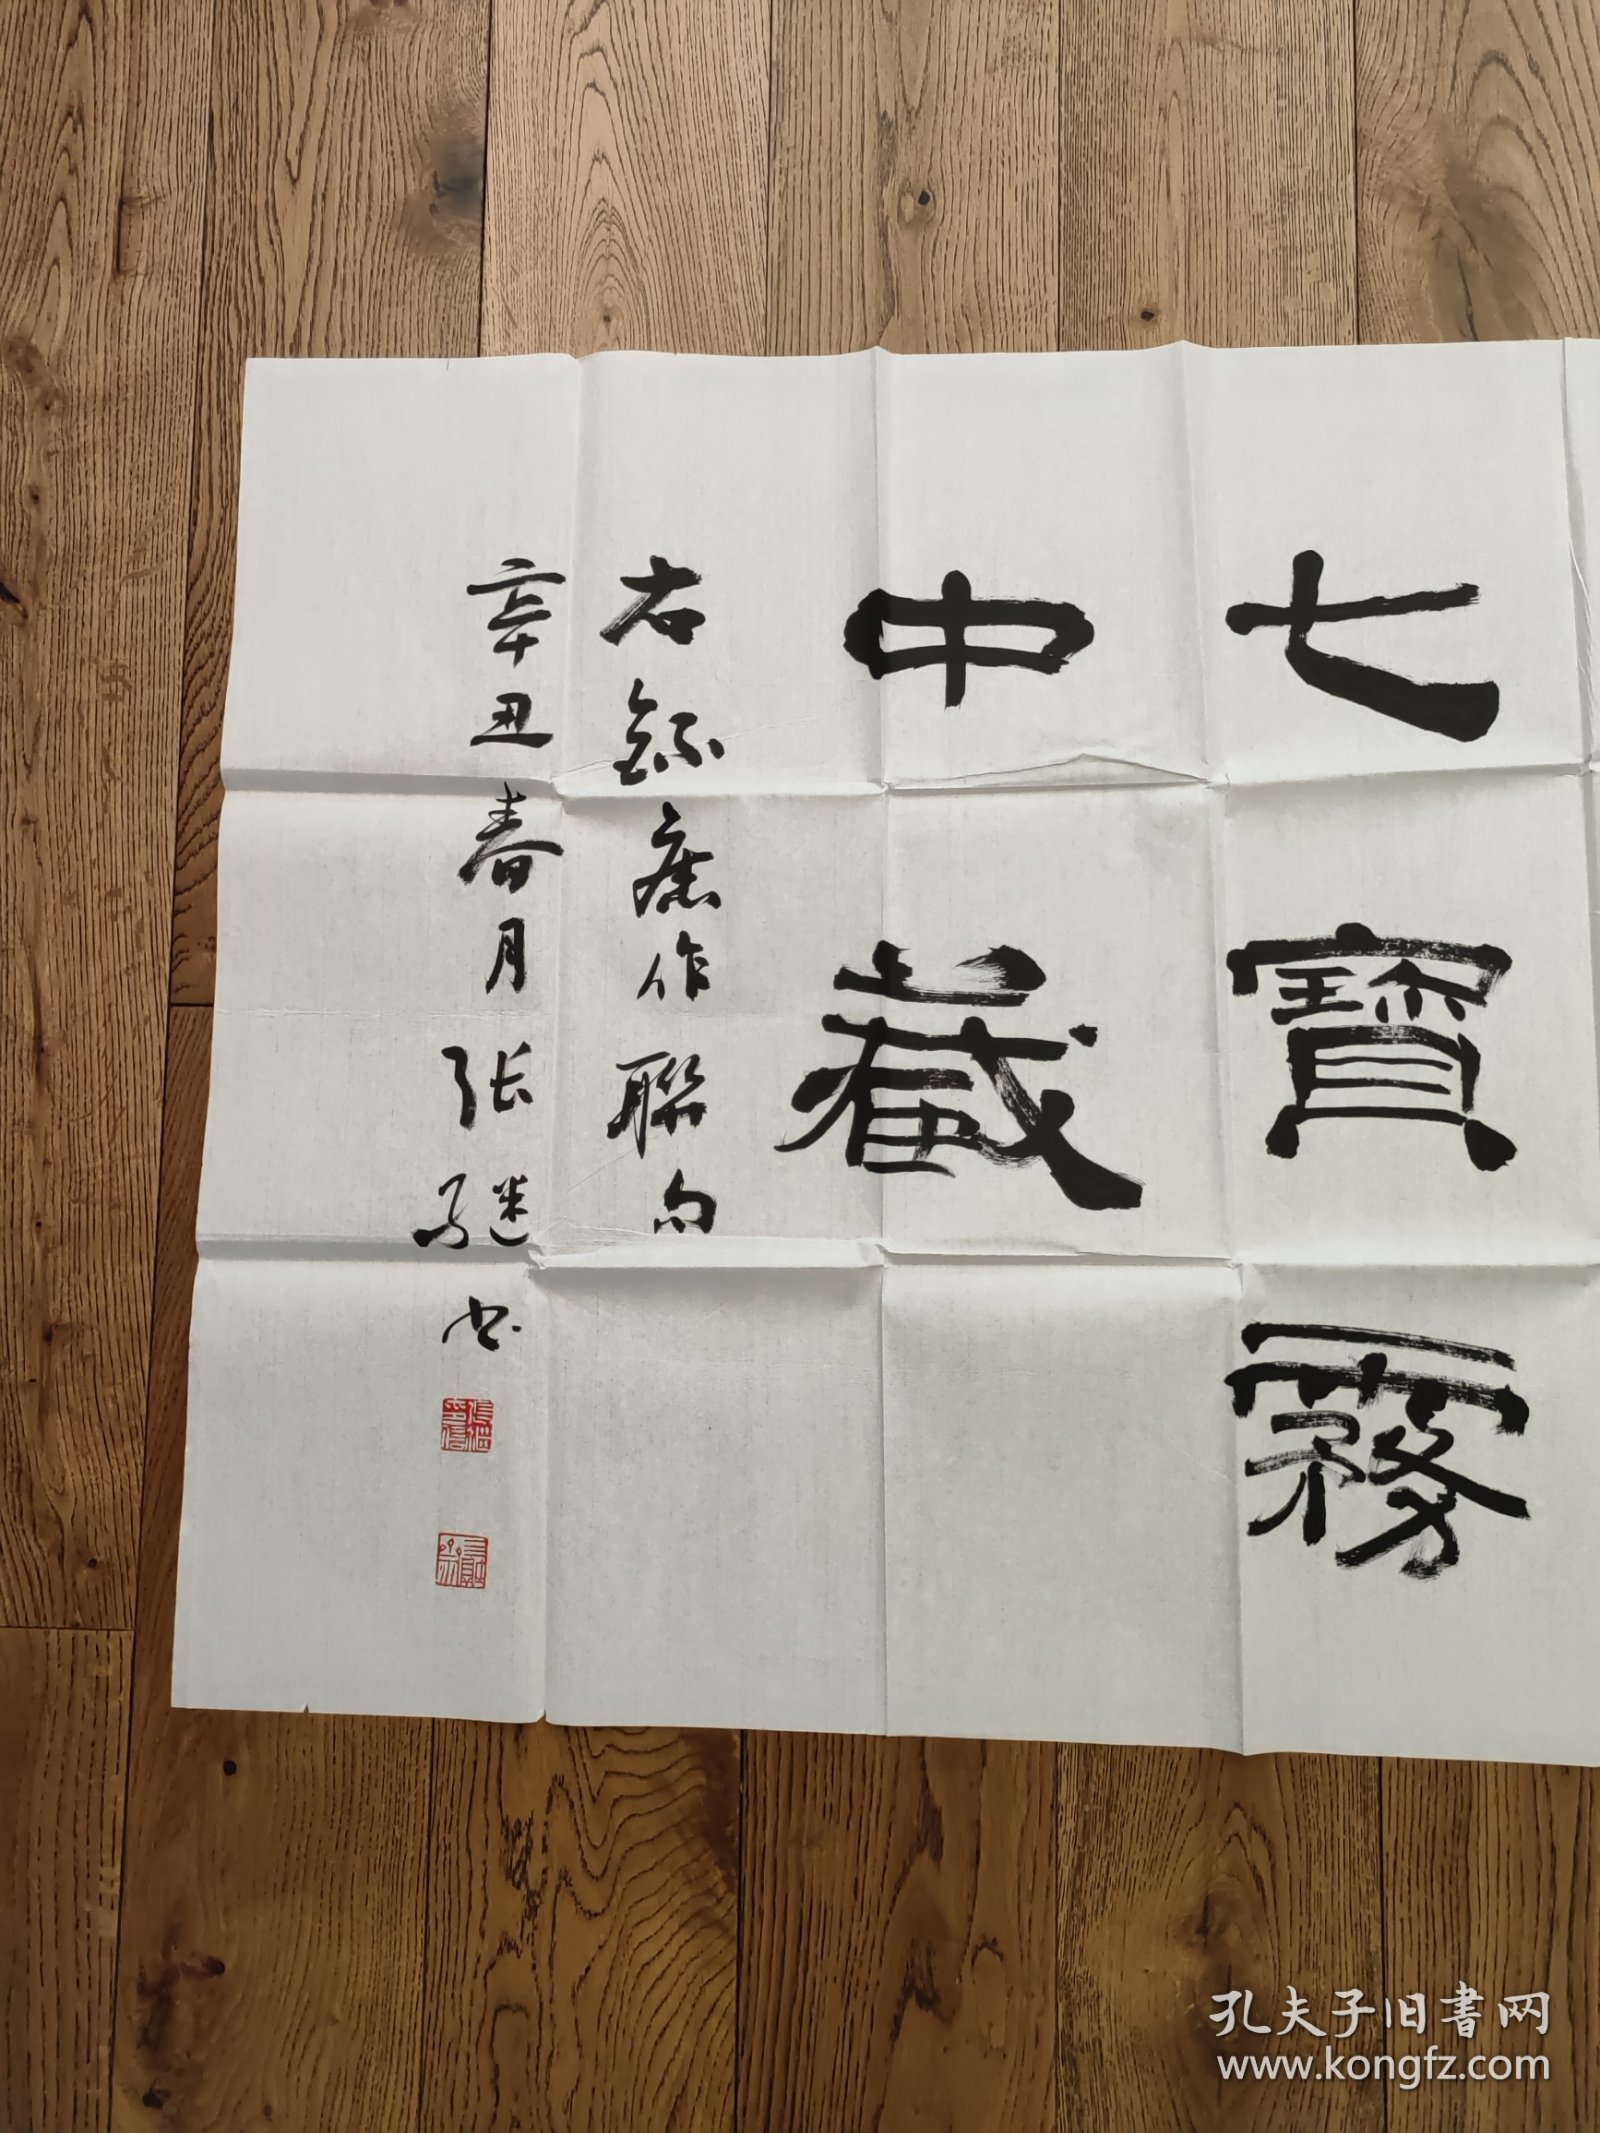 七寶霧
中藏
右録舊作聯句
辛丑春月张継书
孔夫子旧書网
www.kongfz.com